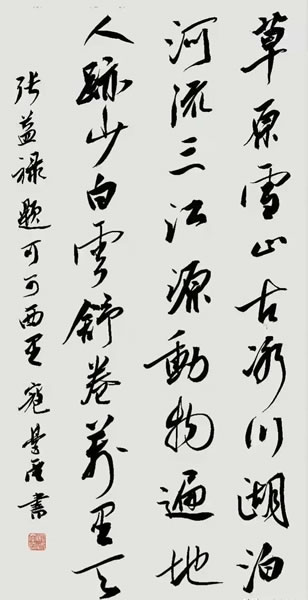 草原雪山古冰川湖泊
河流三江源動物遍地
人跡少白雲舒卷萬里天
張益祿題可可西里 寇書